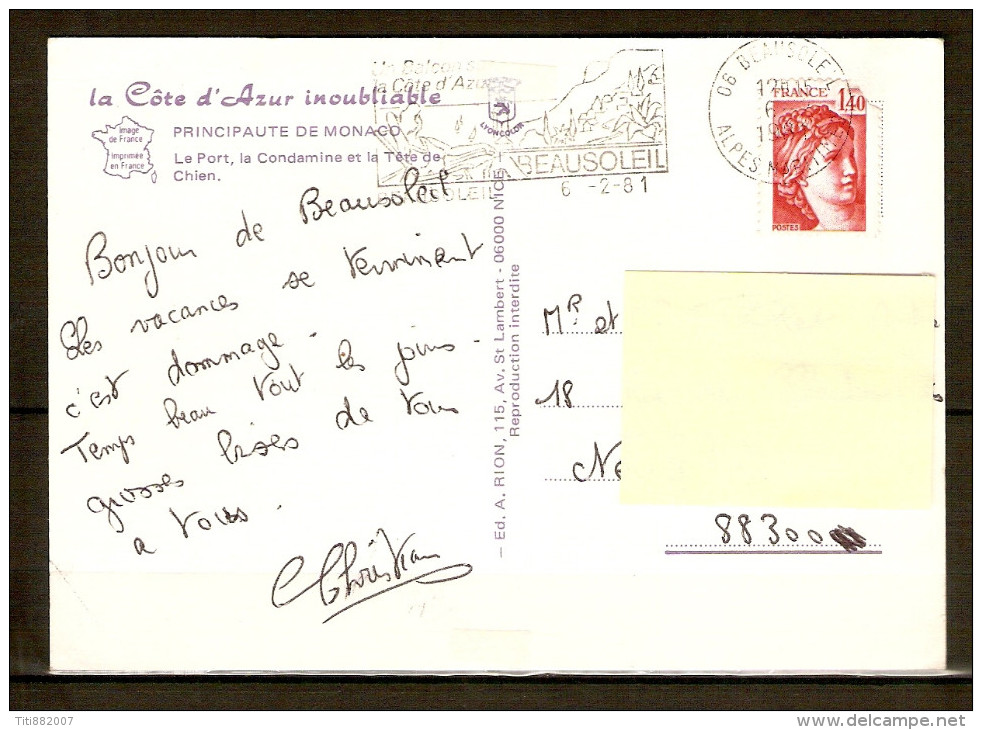 la Côte d'Azur inoubliable
Image
de France
Imprimée
en France
PRINCIPAUTE DE MONACO
Le Port, la Condamine et la Tête de
Chien.
Bonjour de Beausoleil
Les vacances se terminent
c'est dommage -
Temps beau tout les jours -
grosses bises de tous
a tous.
Christian
Un Balcon s
la Côte d'Azur
LYONCOLOR
BEAUSOLEIL
6 -2-81
06 BEAUSOLEIL
ALPES MARITIMES
FRANCE 1,40
POSTES
— Ed. A. RION, 115, Av. St Lambert - 06000 NICE
Reproduction interdite
Mr et
18
Ne
88300
Titi882007
www.delcampe.net